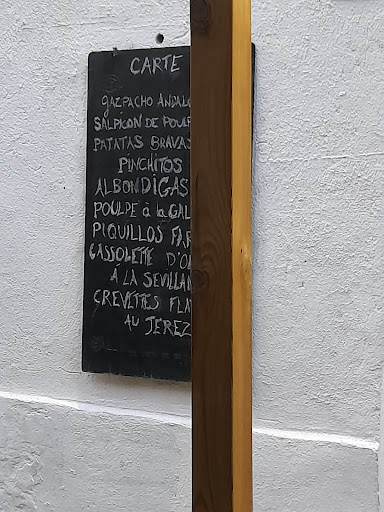 CARTE
GAZPACHO ANDAL
SALPICON DE POULP
PATATAS BRAVAS
PINCHITOS
ALBONDIGAS
POULPE à la GAL
PIQUILLOS FAR
CASSOLETTE D'O
À LA SEVILLAN
CREVETTES FLA
AU JEREZ